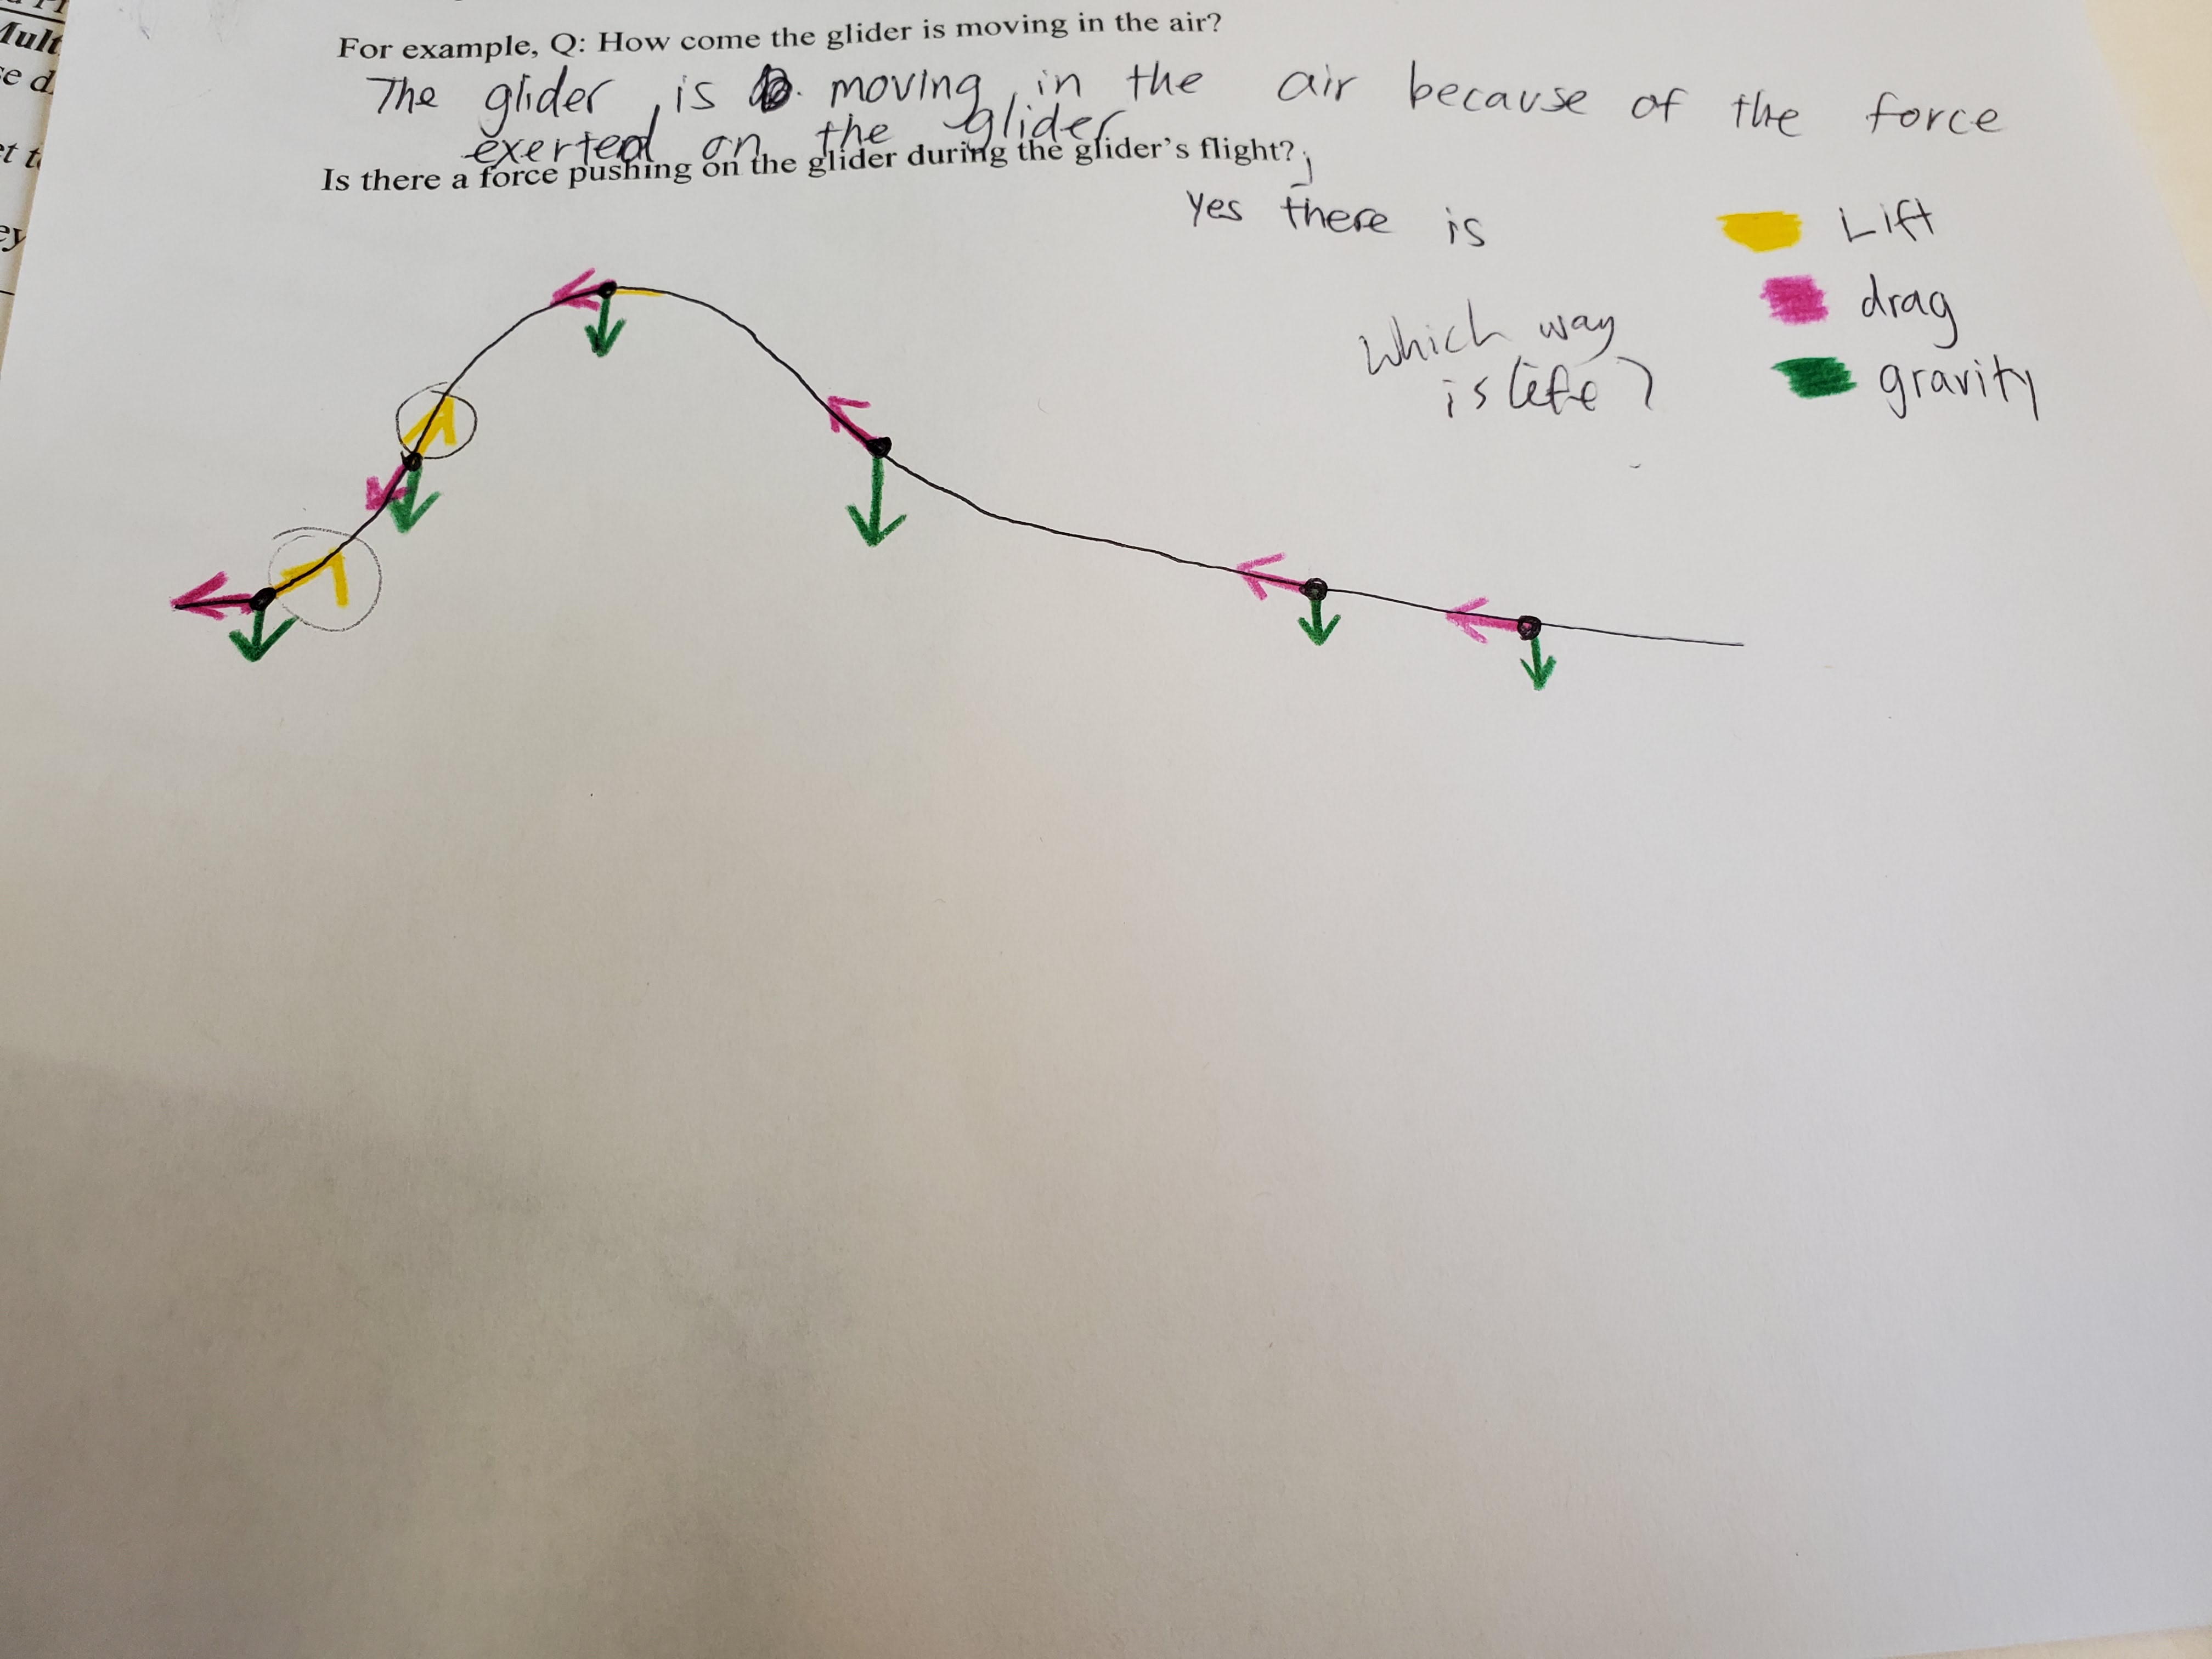 Mult
e d
For example, Q: How come the glider is moving in the air?
The glider is moving in the air because of the force
exerted on the glider
Is there a force pushing on the glider during the glider's flight?
yes there is
Lift
drag
Which way
is life?
gravity
ey